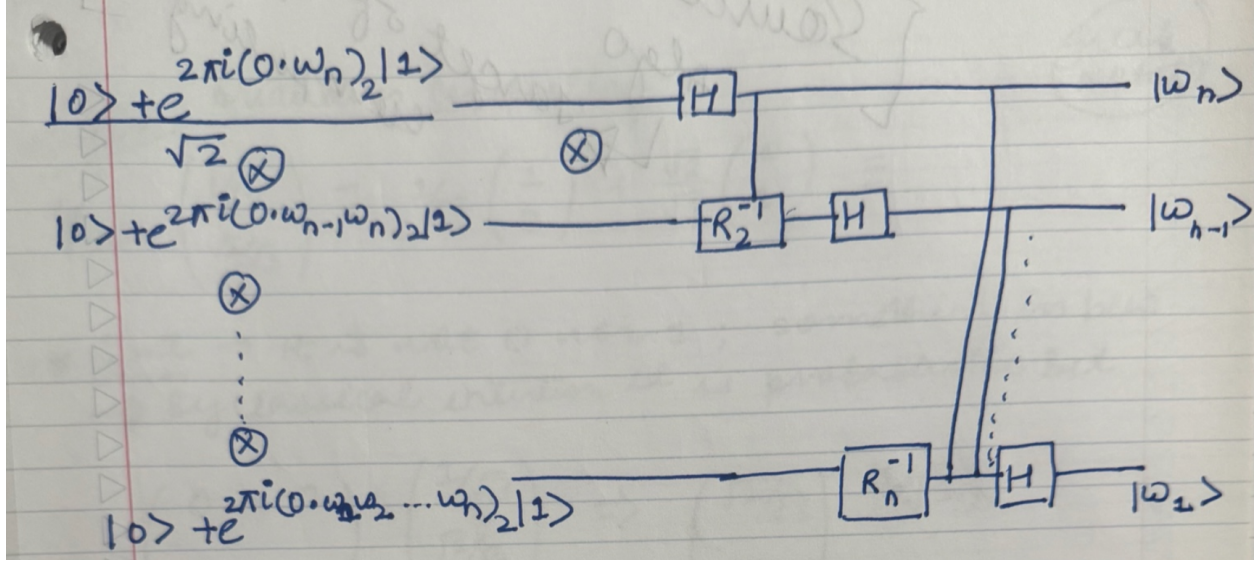 |0> + e^{2πi(0.ω_n)_2}|1> H |ω_n>
√2 ⊗ ⊗
|0> + e^{2πi(0.ω_{n-1}ω_n)_2}|1> R_2^{-1} H |ω_{n-1}>
⊗
⊗
|0> + e^{2πi(0.ω_1ω_2...ω_n)_2}|1> R_n^{-1} H |ω_1>